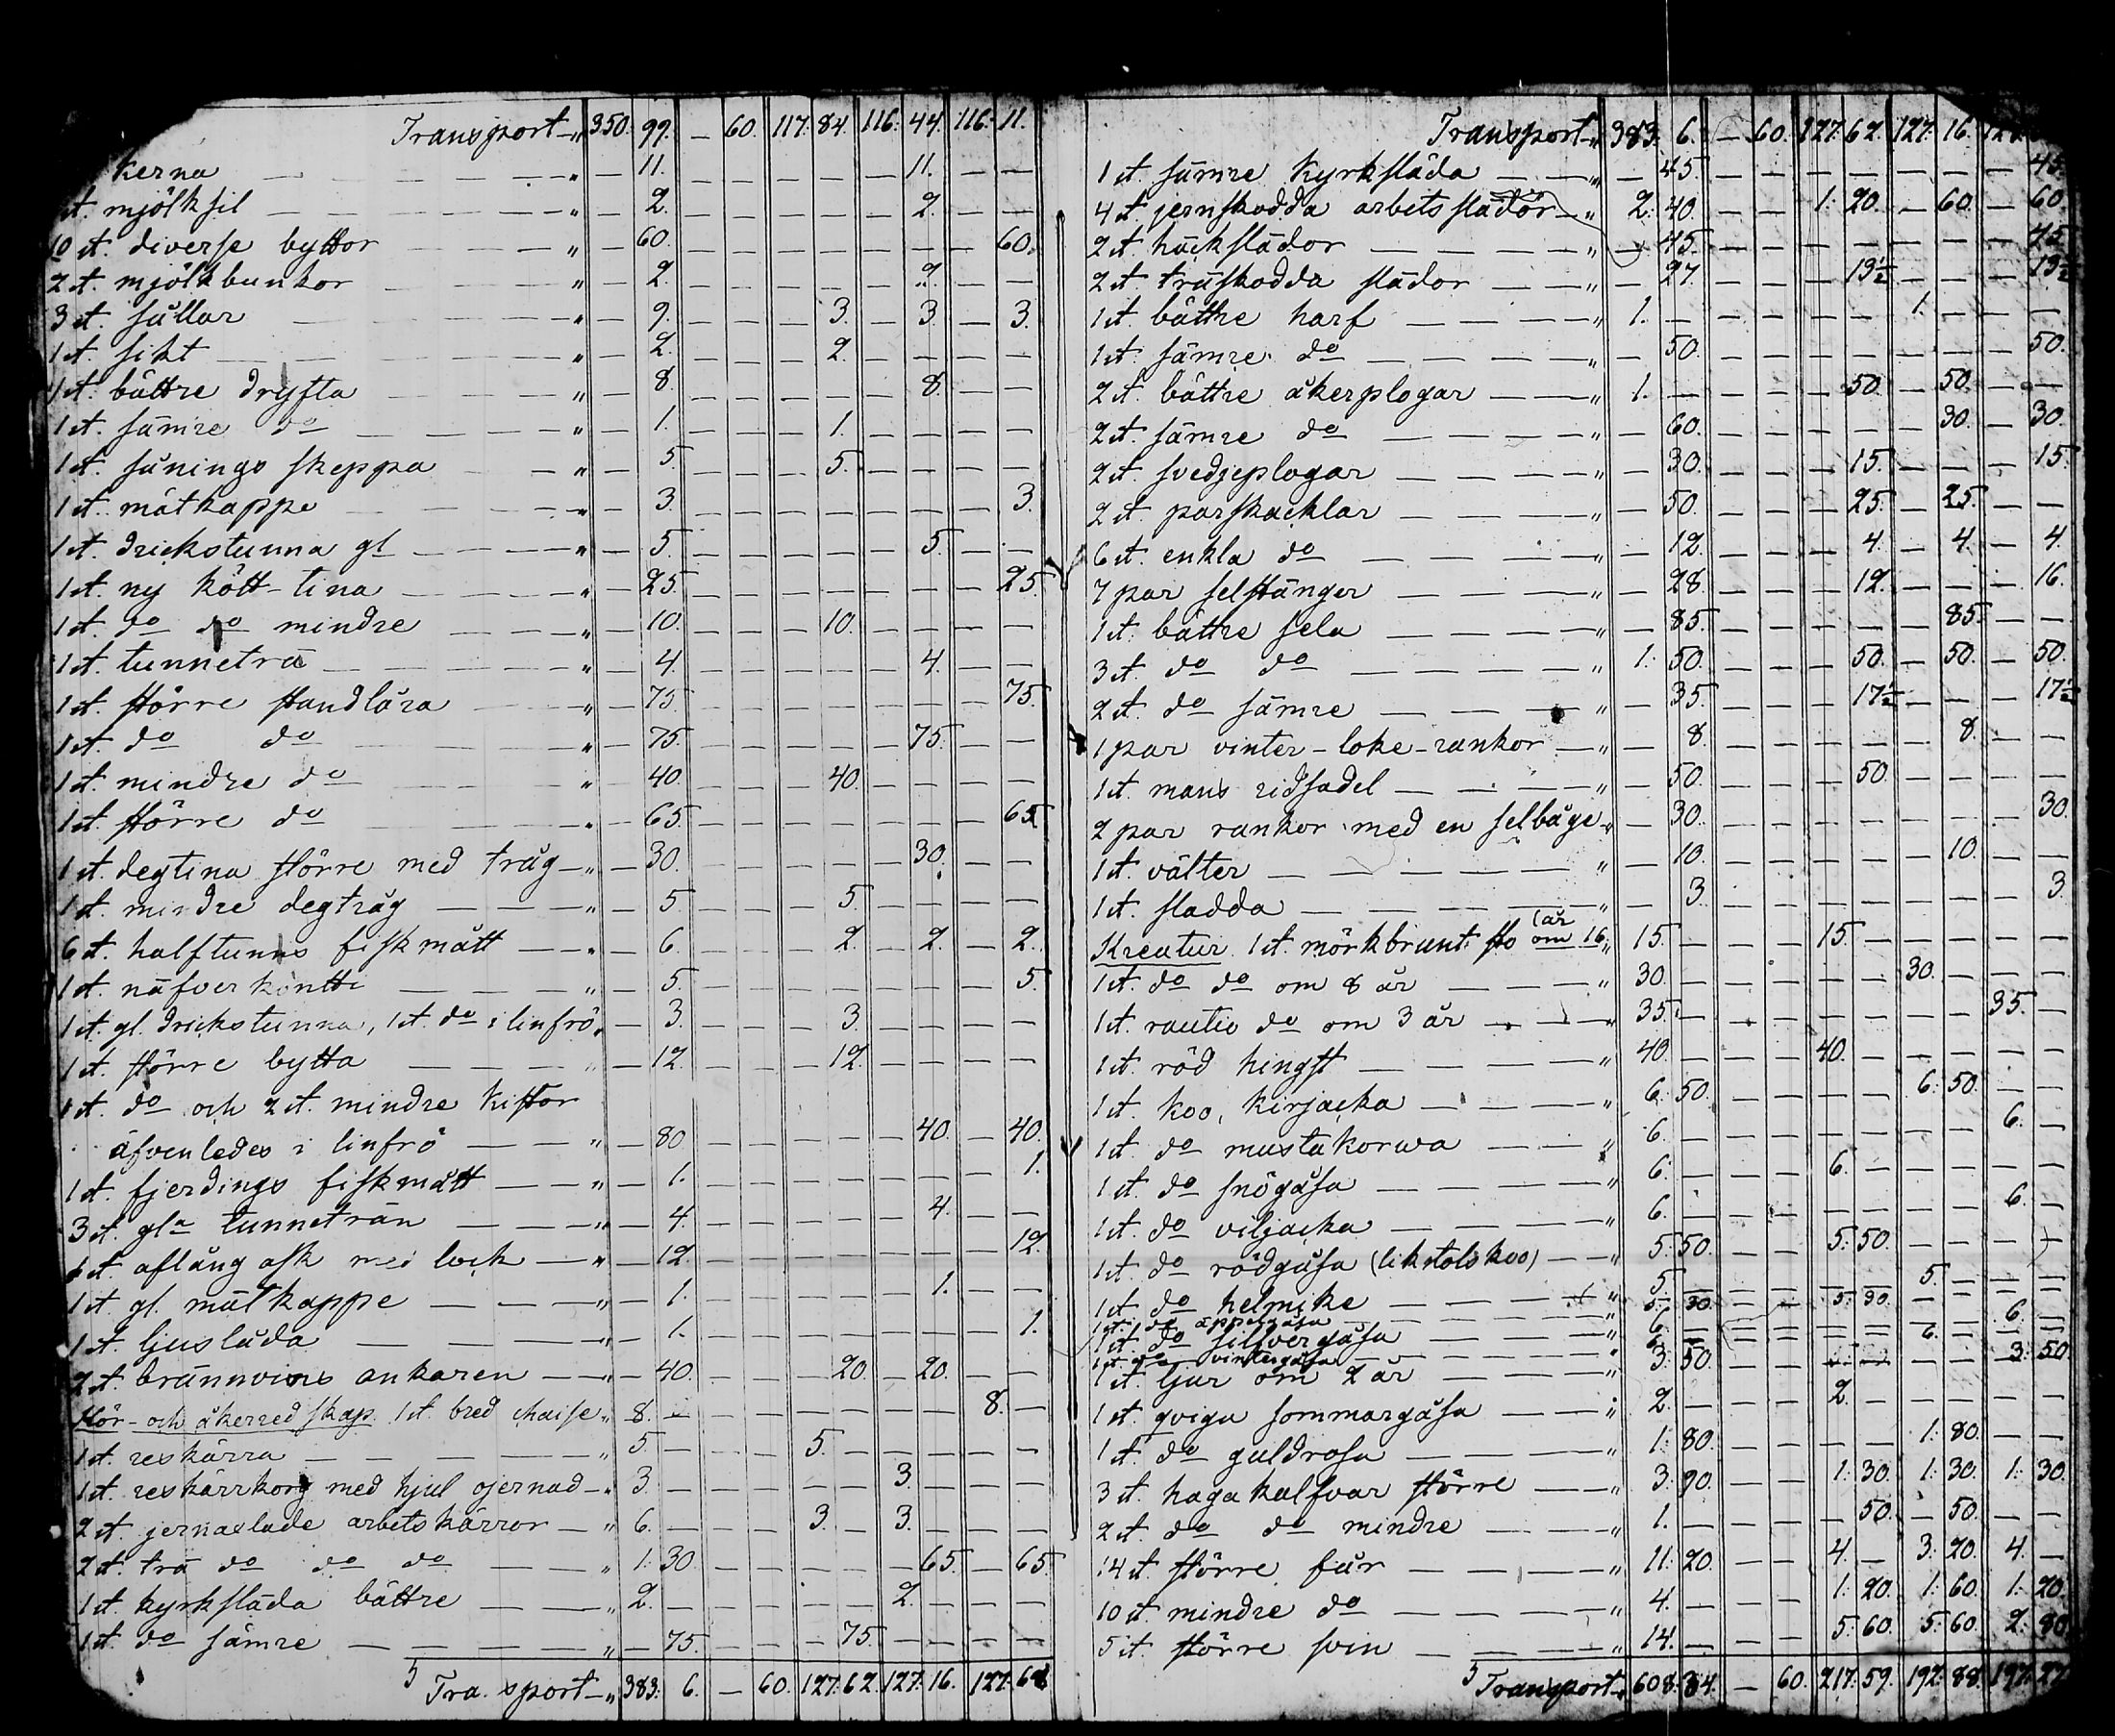 Transport „ 350. 99. — 60. 117. 84. 116. 44. 116. 11.
kerna — „ — 11. — — — — — 11. — —
st. mjölksil — „ — 2. — — — — — 2. — —
10 st. diverse byttor — „ — 60. — — — — — — — 60.
2 st. mjölkbunkor — „ — 2. — — — — — 2. — —
3 st. sållar — „ — 9. — — — 3. — 3. — 3.
1 st. sikt — „ — 2. — — — 2. — — — —
1 st. bättre dryfta — „ — 8. — — — — — 8. — —
1 st. sämre do — „ — 1. — — — 1. — — — —
1 st. sånings skeppa — „ — 5. — — — 5. — — — —
1 st. måtkappe — „ — 3. — — — — — — — 3.
1 st. drickstunna gl — „ — 5. — — — — — 5. — —
1 st. ny kött-tina — „ — 25. — — — — — — — 25.
1 st. do do mindre — „ — 10. — — — 10. — — — —
1 st. tunneträ — „ — 4. — — — — — 4. — —
1 st. större standlåra — „ — 75. — — — — — — — 75.
1 st. do do — „ — 75. — — — — — 75. — —
1 st. mindre do — „ — 40. — — — 40. — — — —
1 st. större do — „ — 65. — — — — — — — 65.
1 st. degtina större med tråg — „ — 30. — — — — — 30. — —
1 st. mindre degtråg — „ — 5. — — — 5. — — — —
6 st. halftunns fiskmått — „ — 6. — — — 2. — 2. — 2.
1 st. näfverkontti — „ — 5. — — — — — — — 5.
1 st. gl. drickstunna, 1 st. do i linfrö „ — 3. — — — 3. — — — —
1 st. större bytta — „ — 12. — — — 12. — — — —
1 st. do och 2 st. mindre kistor
äfvenledes i linfrö — „ — 80 — — — — — 40. — 40.
1 st. fjerdings fiskmått — „ — 1. — — — — — — — 1.
3 st. gla tunneträn — „ — 4. — — — — — 4. — —
1 st. aflång ask med lock — „ — 12. — — — — — — — 12.
1 st. gl. måtkappe — „ — 1. — — — — — 1. — —
1 st. ljuslåda — „ — 1. — — — — — — — 1.
2 st. brännvins ankaren — „ — 40. — — — 20. — 20. — —
Kör- och åkerredskap. 1 st. bred chaise „ 8. — — — — — — — 8. —
1 st. reskärra — „ 5. — — — 5. — — — — —
1 st. reskärrkorg med hjul ojernad — „ 3. — — — — — 3. — — —
2 st. jernaxlade arbetskärror — „ 6. — — — 3. — 3. — — —
2 st. trä do do do — „ 1. 30. — — — — — 65. — 65.
1 st. kyrksläda bättre — „ 2. — — — — — 2. — — —
1 st. do sämre — „ — 75. — — — 75. — — — —
Transport — „ 383. 6. — 60. 127. 62. 127. 16. 127. 61
Transport „ 383. 6. — 60. 127. 62. 127. 16.
1 st. sämre kyrksläda — „ — 45. — — — — — — — 45.
4 st. jernskodda arbetsslädor — „ 2. 40. — — 1. 20. — 60. — 60.
2 st. häckslädor — „ — 45. — — — — — — — 45
2 st. träskodda slädor — „ — 27. — — — 13½ — — — 13½
1 st. bättre harf — „ 1. — — — — — 1. — — —
1 st. sämre do — „ — 50. — — — — — — — 50.
2 st. bättre åkerplogar — „ 1. — — — — 50. — 50. — —
2 st. sämre do — „ — 60. — — — — — 30. — 30.
2 st. svedjeplogar — „ — 30. — — — 15. — — — 15.
2 st. parskacklar — „ — 50. — — — 25. — 25. — —
6 st. enkla do — „ — 12. — — — 4. — 4. — 4.
7 par selstänger — „ — 28. — — — 12. — — — 16.
1 st. bättre sela — „ — 85. — — — — — 85. — —
3 st. do do — „ 1. 50. — — — 50. — 50. — 50.
2 st. do sämre — „ — 35. — — — 17½ — — — 17½
1 par vinter-loke-rankor — „ — 8. — — — — — 8. — —
1 st. mans ridsadel — „ — 50. — — — 50. — — — —
2 par rankor med en selbåge „ — 30. — — — — — — — 30.
1 st. välter — „ — 10. — — — — — 10. — —
1 st. sladda — „ — 3. — — — — — — — 3.
Kreatur. 1 st. mörkbrunt sto om 16 (år „ 15. — — — 15. — — — — —
1 st. do do om 8 år — „ 30. — — — — — 30. — — —
1 st. rautio do om 3 år — „ 35. — — — — — — — 35. —
1 st. röd hingst — „ 40. — — — 40. — — — — —
1 st. koo, kirjacka — „ 6. 50. — — — — 6. 50. — —
1 st. do mustakorwa — „ 6. — — — — — — — 6. —
1 st. do snögåsa — „ 6. — — — 6. — — — — —
1 st. do viljacka — „ 6. — — — — — — — 6. —
1 st. do rödgåsa (likstolskoo) — „ 5. 50. — — 5. 50. — — — —
1 st. do helmike — „ 5. — — — — — 5. — — —
1 st. do äppelgåsa „ 5. 30. — — 5. 30. — — — —
1 st. do silfvergåsa — „ 6. — — — — — — — 6. —
1 st. do vintergåsa „ 6. — — — — — 6. — — —
1 st. tjur om 2 år — „ 3. 50. — — — — — — 3. 50
1 st. qviga sommargåsa — „ 2. — — — 2. — — — — —
1 st. do guldrosa — „ 1. 80. — — — — 1. 80. — —
3 st. hagakalfvar större — „ 3. 90. — — 1. 30. 1. 30. 1. 30.
2 st. do do mindre — „ 1. — — — — 50. — 50. — —
14 st. större får — „ 11. 20. — — 4. — 3. 20. 4. —
10 st. mindre do — „ 4. — — — 1. 20. 1. 60. 1. 20.
5 st. större svin — „ 14. — — — 5. 60. 5. 60. 2. 80.
Transport „ 608. 34. — 60. 217. 59. 192. 88. 197. 27.